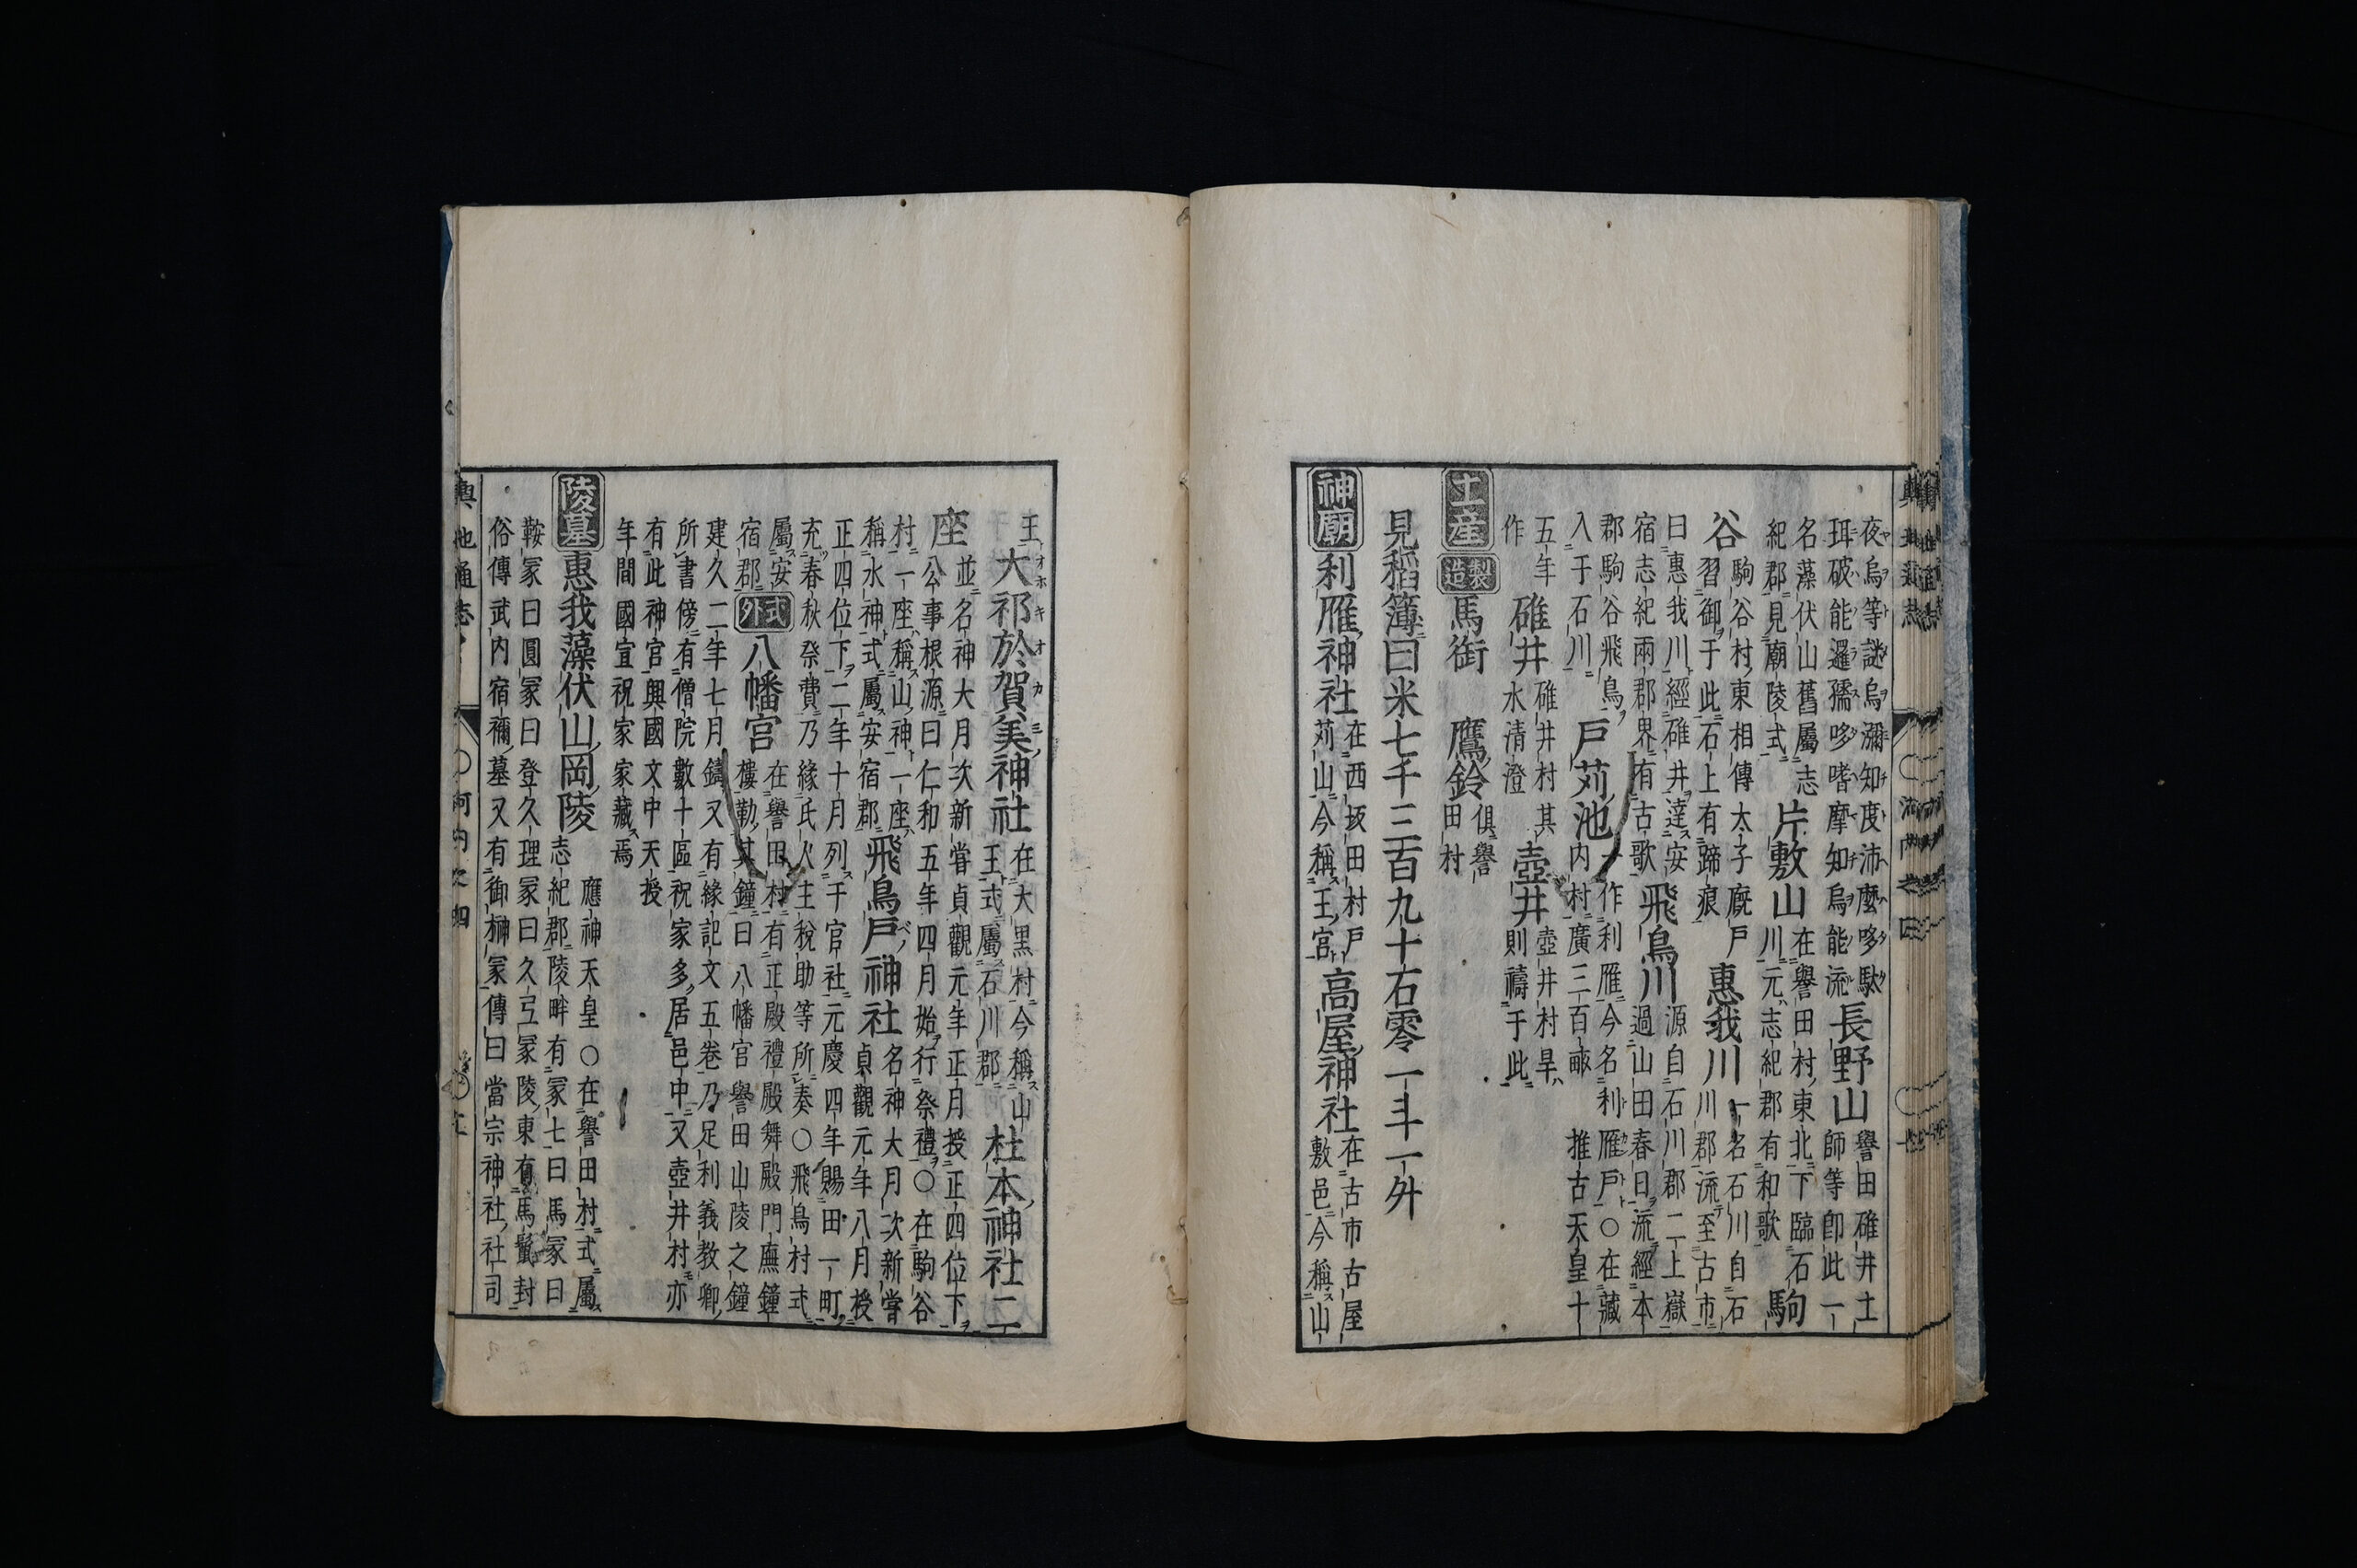 夜烏等謎烏瀰知度沛麼哆駄珥破能邐孺哆嗜摩知烏能流長野山譽田碓井土師等卽此一
名藻伏山舊屬志紀郡見廟陵式片敷山在譽田村東北下臨石川元志紀郡有和歌駒
谷駒谷村東相傳太子廐戶習御于此石上有蹄痕惠我川一名石川自石川郡流至古市
曰惠我川經碓井達安宿志紀兩郡界有古歌飛鳥川源自石川郡二上嶽過山田春日流經本
郡駒谷飛鳥入于石川戸苅池一作利雁今名利雁戸○在藏内村廣三百畝推古天皇十
五年作碓井碓井村其水清澄壺井壺井村旱則禱于此
土産製造馬銜鷹鈴俱譽田村
見稻簿曰米七千三百九十右零一斗一升
神廟利雁神社在西坂田村戸苅山今稱王宮高屋神社在古市古屋敷邑今稱山
王大祁於賀美神社在大黒村今稱山王式屬石川郡杜本神社二
座並名神大月次新甞貞觀元年正月授正四位下公事根源曰仁和五年四月始行祭禮○在駒谷
村一座稱山神一座稱水神式屬安宿郡飛鳥戸神社名神大月次新甞貞觀元年八月授
正四位下二年十月列于官社元慶四年賜田一町充春秋祭費乃緣氏人主稅助等所奏○飛鳥村式
屬安宿郡式外八幡宮在譽田村有正殿禮殿舞殿門廡鐘樓勒其鐘曰八幡宮譽田山陵之鐘
建久二年七月鑄又有緣記文五巻乃足利義教卿所書傍有僧院數十區祝家多居邑中又壺井村亦
有此神宮興國文中天授年間國宣祝家家藏焉
陵墓惠我藻伏山岡陵應神天皇○在譽田村式屬志紀郡陵畔有冢七曰馬冢曰
鞍冢曰圓冢曰登久理冢曰久弖冢陵東有馬鬣封俗傳武内宿禰墓又有御榊冢傳曰當宗神社社司
輿地通志
河内之四